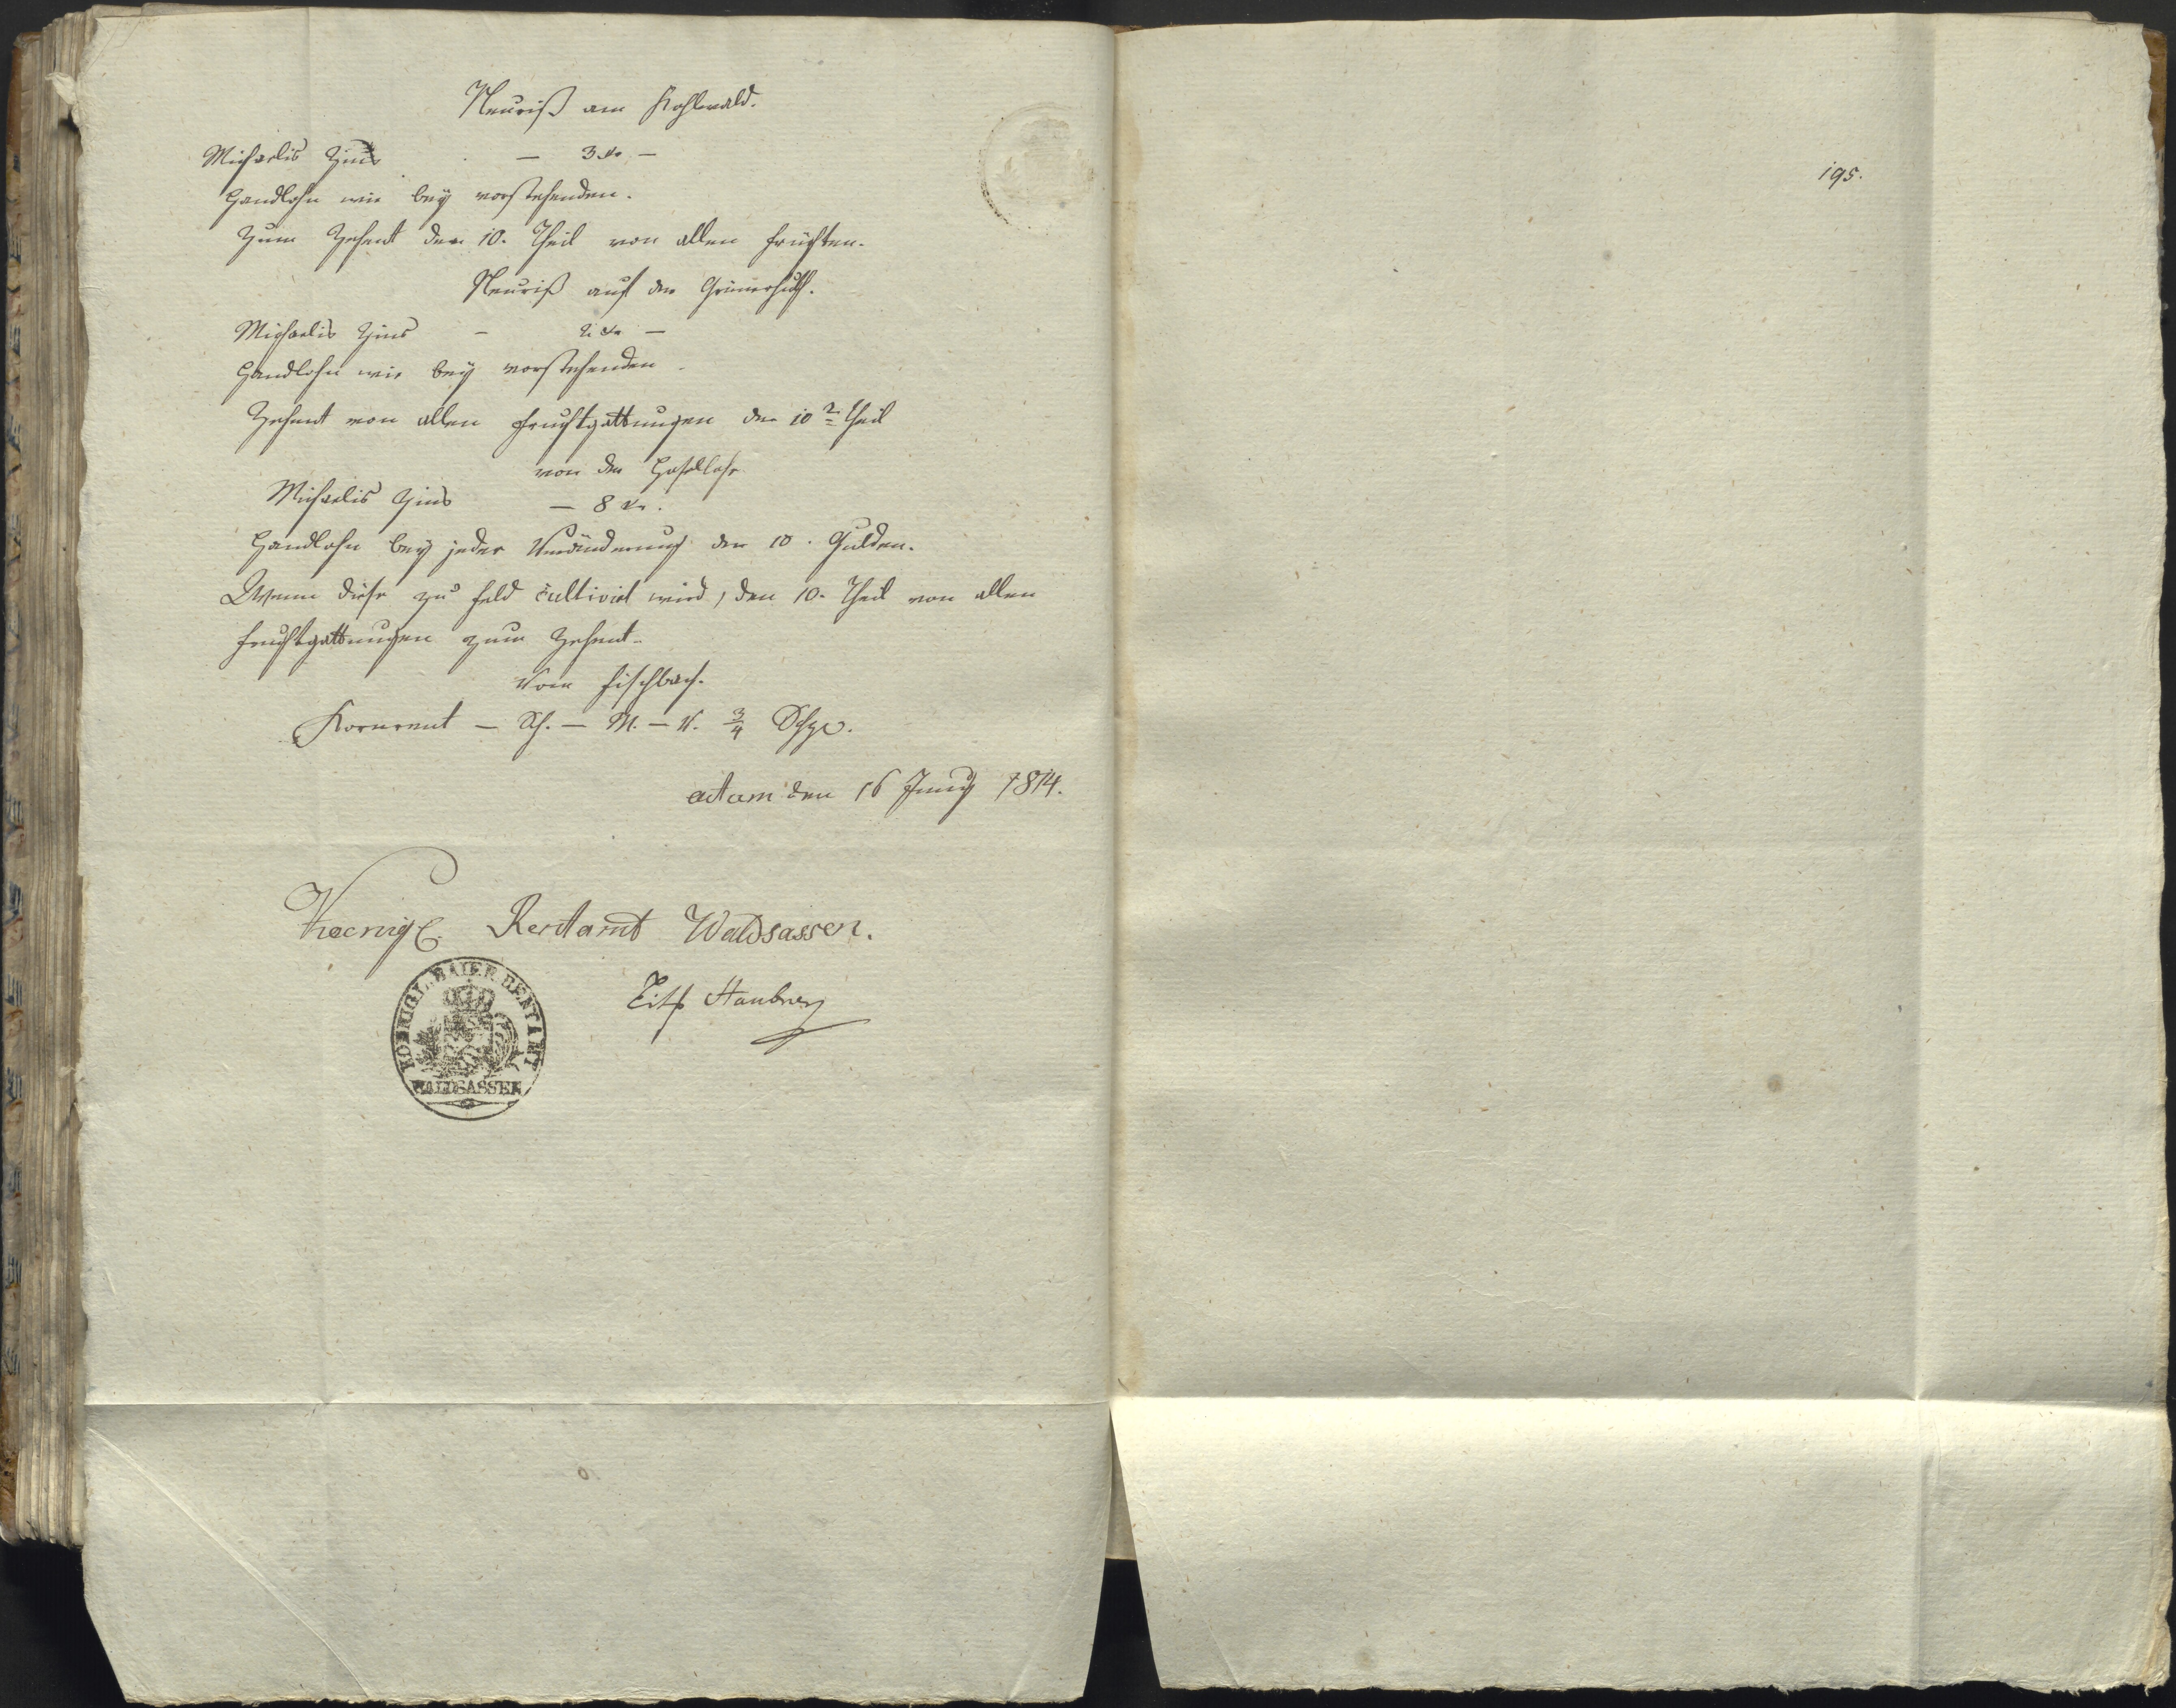 Neuriß am Kohlwald.
Michaelis Zins — 3 kr. —
Handlohn wie bey vorstehenden.
Zum Zehent den 10. Theil von allen Früchten.
Neuriß auf der
Michaelis Zins — 2 kr. —
Handlohn wie bey vorstehenden
Zehent von allen Fruchtgattungen der 10te Theil
von der
Michaelis Zins — 8 kr.
Handlohn bey jeder Veränderung der 10. Gulden.
Wenn diese zu Feld cultivirt wird, den 10. Theil von allen
Fruchtgattungen zum Zehent.
Vom Fischbach.
Kornrent — Sch. — M. — V. 3/4
actum den 16 Juny 1814.
Koenigl. Rentamt Waldsassen.
KOENIGL. BAIER. RENTAMT
WALDSASSEN
195.